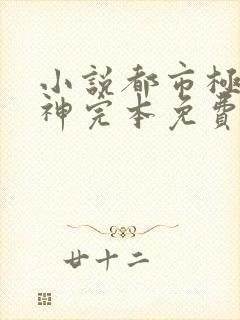 小說都市極
神完本免費
廿十二